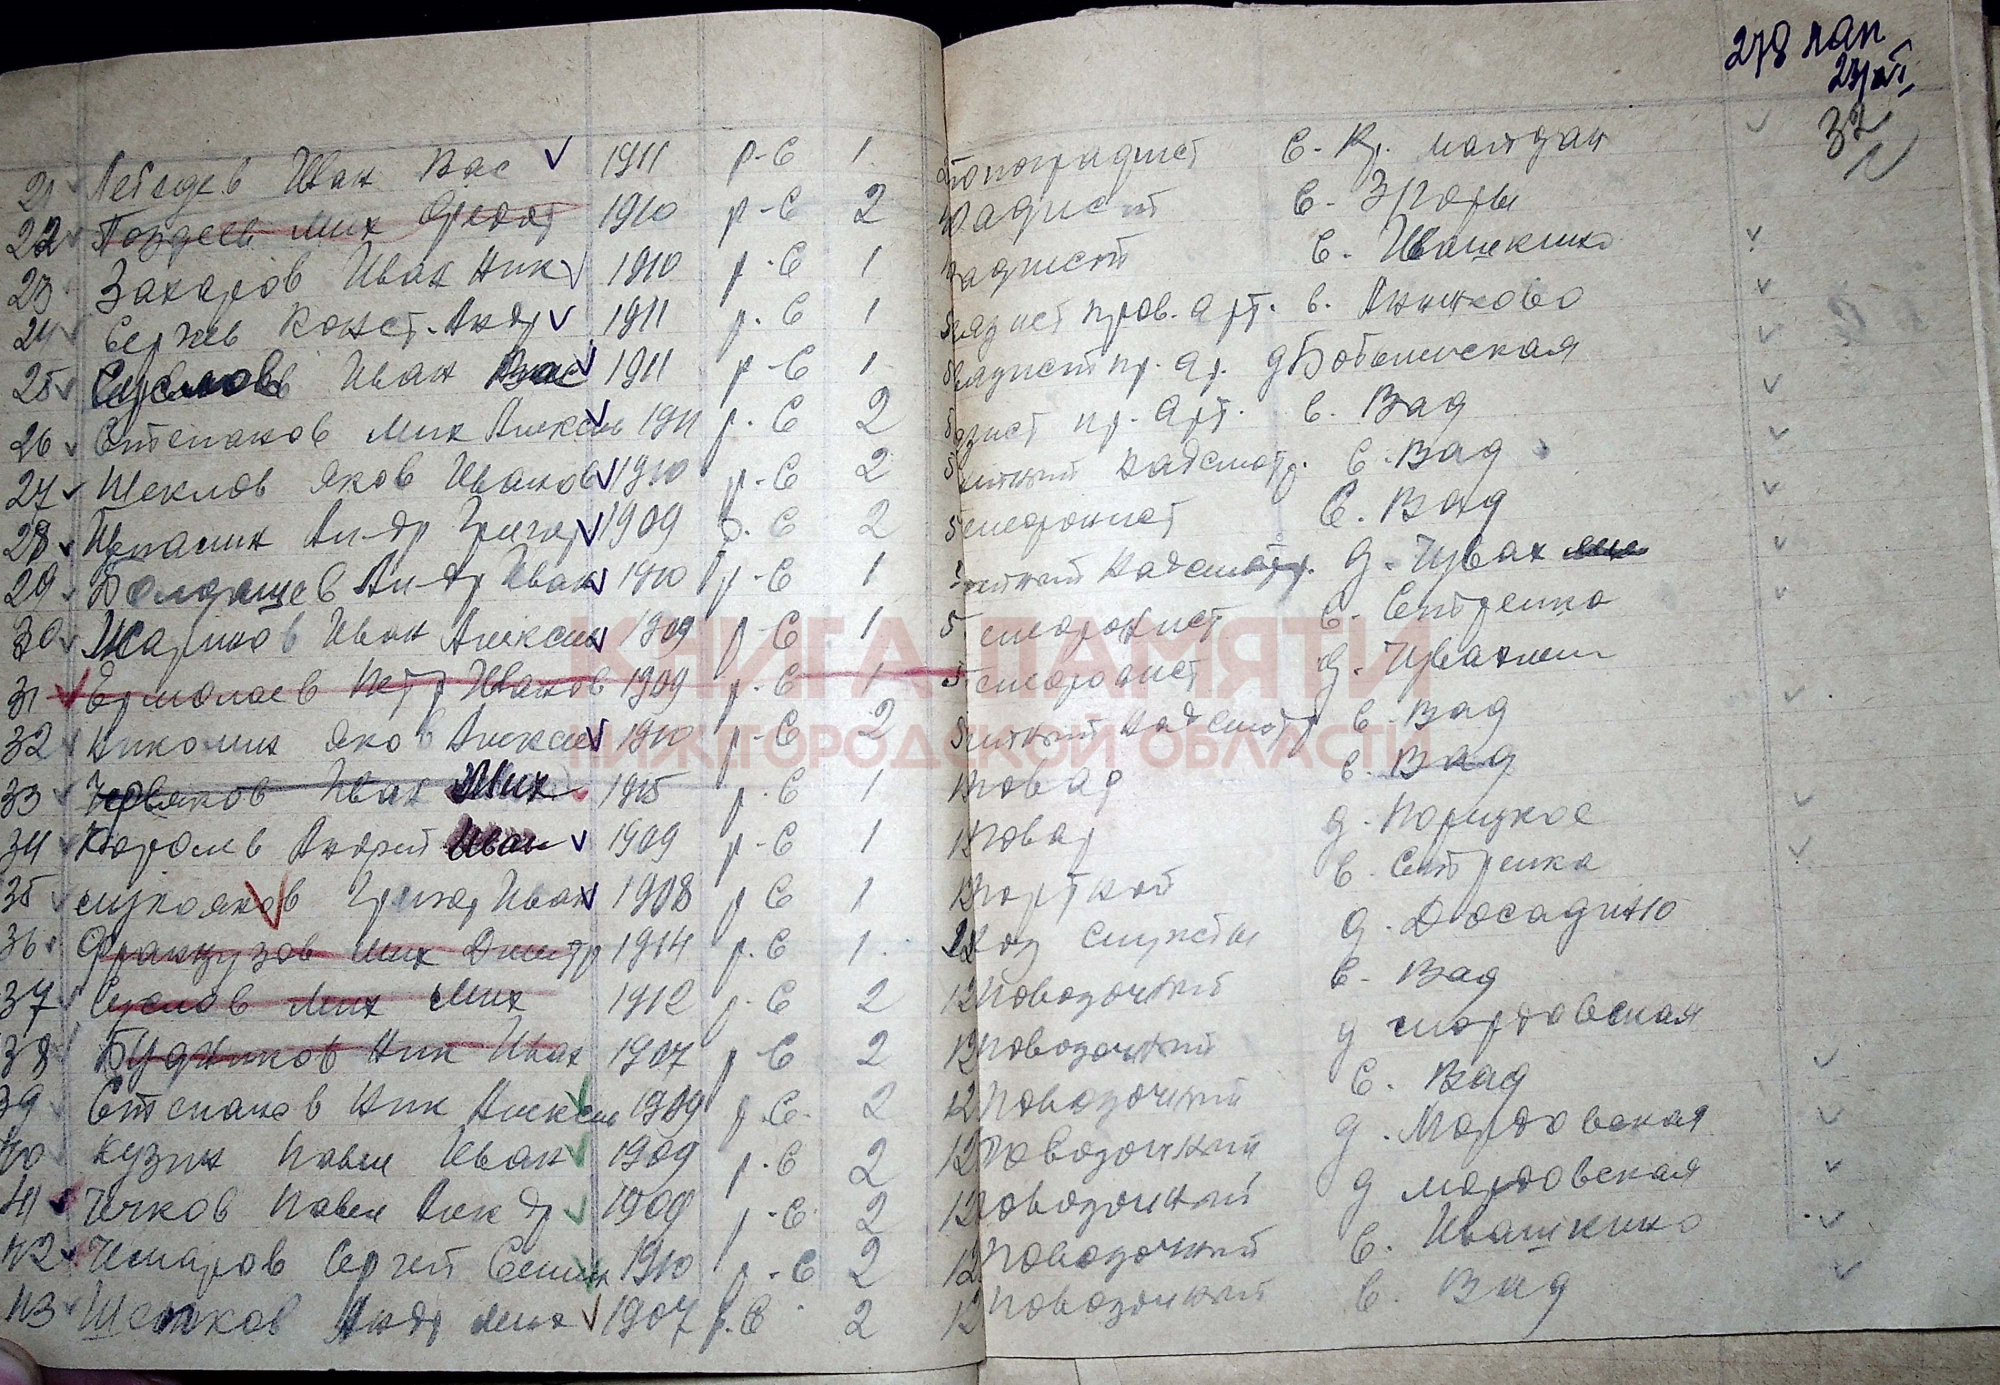 278 лап
32
21 Лебедев Иван Вас 1911 р-с 1 топографист с. Кр. майдан
22 Поздеев Мих Федот 1910 р-с 2 радист с. Згоры
23 Захаров Иван Ник 1910 р-с 1 радист с. Ивашкино
24 Сергеев Конст. Андр 1911 р.с 1 радист пров. арт. с. Анниково
25 Суслов Иван Вас 1911 р-с 1 радист пр. ар. д Бобылевская
26 Степанов Мих Алексе 1911 р.с 2 пр. арт. с. Вад
27 Щеклов Яков Иванов 1910 р-с 2 надсмотр. с. Вад
28 Андр Григор 1909 р.с 2 5 с. Вад
29 Болдашев Андр Иван 1910 р-с 1 надсмотр. д.
30 Жаринов Иван Алексе 1909 р-с 1 5 с. Стрелка
31 Ермолаев Петр Иванов 1909 р-с 1 5 д.
32 Николин Яков Алексе 1910 р-с 2 надсмотр с. Вад
33 Червяков Иван Мих 1915 р-с 1 повар с. Вад
34 Королев Андрей Иван 1909 р-с 1 повар д. Порцкое
35 Григор Иван 1908 р с 1 12 портной с. Стрелка
36 Французов Мих Дмитр 1914 р.с 1 12 хоз службы д. Досадино
37 Суслов Мих Мих 1912 р-с 2 12 повозочный с. Вад
38 Будников Ник Иван 1907 р-с 2 12 повозочный д мордовская
39 Степанов Ник Алексе 1909 р.с. 2 12 повозочный с. Вад
40 Кузин Павел Иван 1909 р.с 2 12 повозочный д. Мордовская
41 Чечков Павел Алекдр 1909 р-с 2 12 повозочный д мордовская
42 Чемаров Сергей Семен 1910 р-с 2 12 повозочный с. Ивашкино
43 Андр Мих 1907 р.с 2 12 повозочный с. Вад
КНИГА ПАМЯТИ
НИЖЕГОРОДСКОЙ ОБЛАСТИ